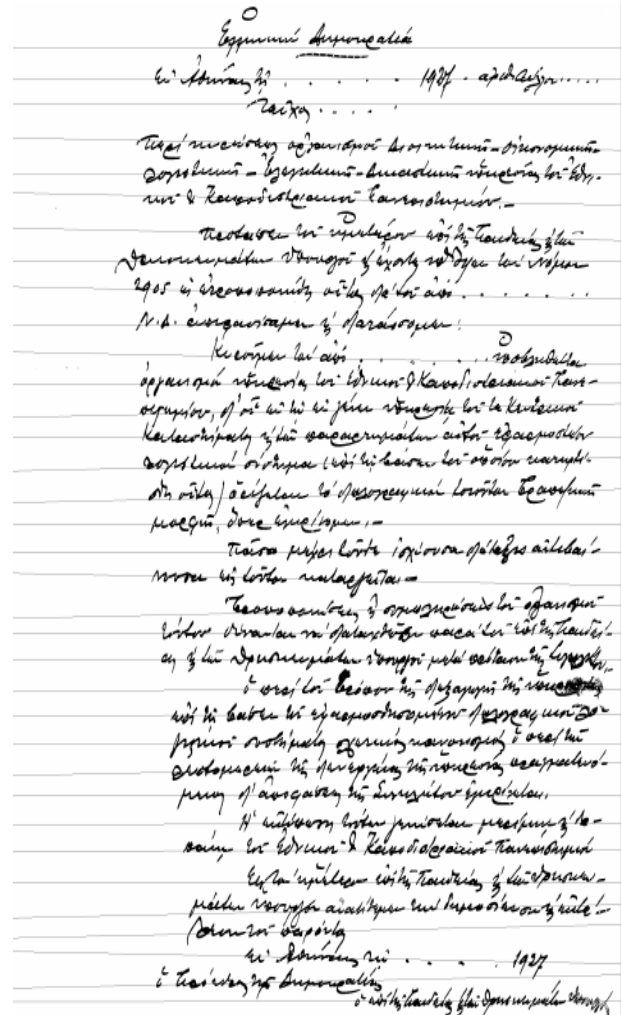 Ἑλληνική Δημοκρατία
Ἐν Ἀθήναις τῇ . . . . . . 1927 . ἀριθ φύλλου . . . .
Τεῦχος . . . .
Περί κυρώσεως ὀργανισμοῦ Διοικητικῆς – Οἰκονομικῆς –
Λογιστικῆς – Ἐλεγκτικῆς – Δικαστικῆς ὑπηρεσίας τοῦ Ἐθνι-
κοῦ & Καποδιστριακοῦ Πανεπιστημίου. –
Προτάσει τοῦ ἡμετέρου ἐπί τῆς Παιδείας κ' τῶν
Θρησκευμάτων Ὑπουργοῦ κ' ἔχοντες ὑπ' ὄψει τόν Νόμον
2905 ὡς ἐτροποποιήθη οὗτος διά τοῦ ἀπό . . . . . . .
Ν.Δ. ἀπεφασίσαμεν κ' διατάσσομεν:
Κυροῦμεν τόν ἀπό . . . . . . . . ὑποβληθέντα
ὀργανισμόν ὑπηρεσίας τοῦ Ἐθνικοῦ & Καποδιστριακοῦ Πανε-
πιστημίου, δι' οὗ ἐν τῇ ἐν γένει ὑπηρεσίᾳ τοῦ τε Κεντρικοῦ
Καταστήματος κ' τῶν παραρτημάτων αὐτοῦ ἐφαρμοστέον
λογιστικόν σύστημα (ἐπί τῇ βάσει τοῦ ὁποίου κατηρτί-
σθη οὗτος) ὁρίζεται τό διπλογραφικόν τοιοῦτον Τραπεζικῆς
μορφῆς, ὅπερ ἐγκρίνομεν. –
Πᾶσα μέχρι τοῦδε ἰσχύουσα διάταξις ἀντιβαί-
νουσα εἰς τοῦτον καταργεῖται –
Τροποποιήσεις ἤ συμπληρώσεις τοῦ ὀργανισμοῦ
τούτου δύνανται νά διαταχθῶσι παρά τοῦ ἐπί τῆς Παιδεί-
ας κ' τῶν Θρησκευμάτων Ὑπουργοῦ μετά πρότασιν τῆς Συγκλήτου.
ὁ περί τοῦ τρόπου τῆς διεξαγωγῆς τῆς ὑπηρεσίας
ἐπί τῇ βάσει τοῦ ἐφαρμοσθησομένου διπλογραφικοῦ Λο-
γιστικοῦ συστήματος σχετικός κανονισμός ὁ περί τῶν
λεπτομερειῶν τῆς διενεργείας τῆς ὑπηρεσίας πραγματευό-
μενος δι' ἀποφάσεως τῆς Συγκλήτου ἐγκρίνεται.
Ἡ ἐκτύπωσις τούτου γενήσεται μερίμνῃ κ' δα-
πάνῃ τοῦ Ἐθνικοῦ & Καποδιστριακοῦ Πανεπιστημίου
Εἰς τόν ἡμέτερον ἐπί τῆς Παιδείας κ' τῶν Θρησκευ-
μάτων ὑπουργόν ἀνατίθεμεν τήν δημοσίευσιν κ' ἐκτέ-
λεσιν τοῦ παρόντος
Ἐν Ἀθήναις τῇ . . . . . 1927
ὁ Πρόεδρος τῆς Δημοκρατίας
ὁ ἐπί τῆς Παιδείας κ' τῶν Θρησκευμάτων Ὑπουργός